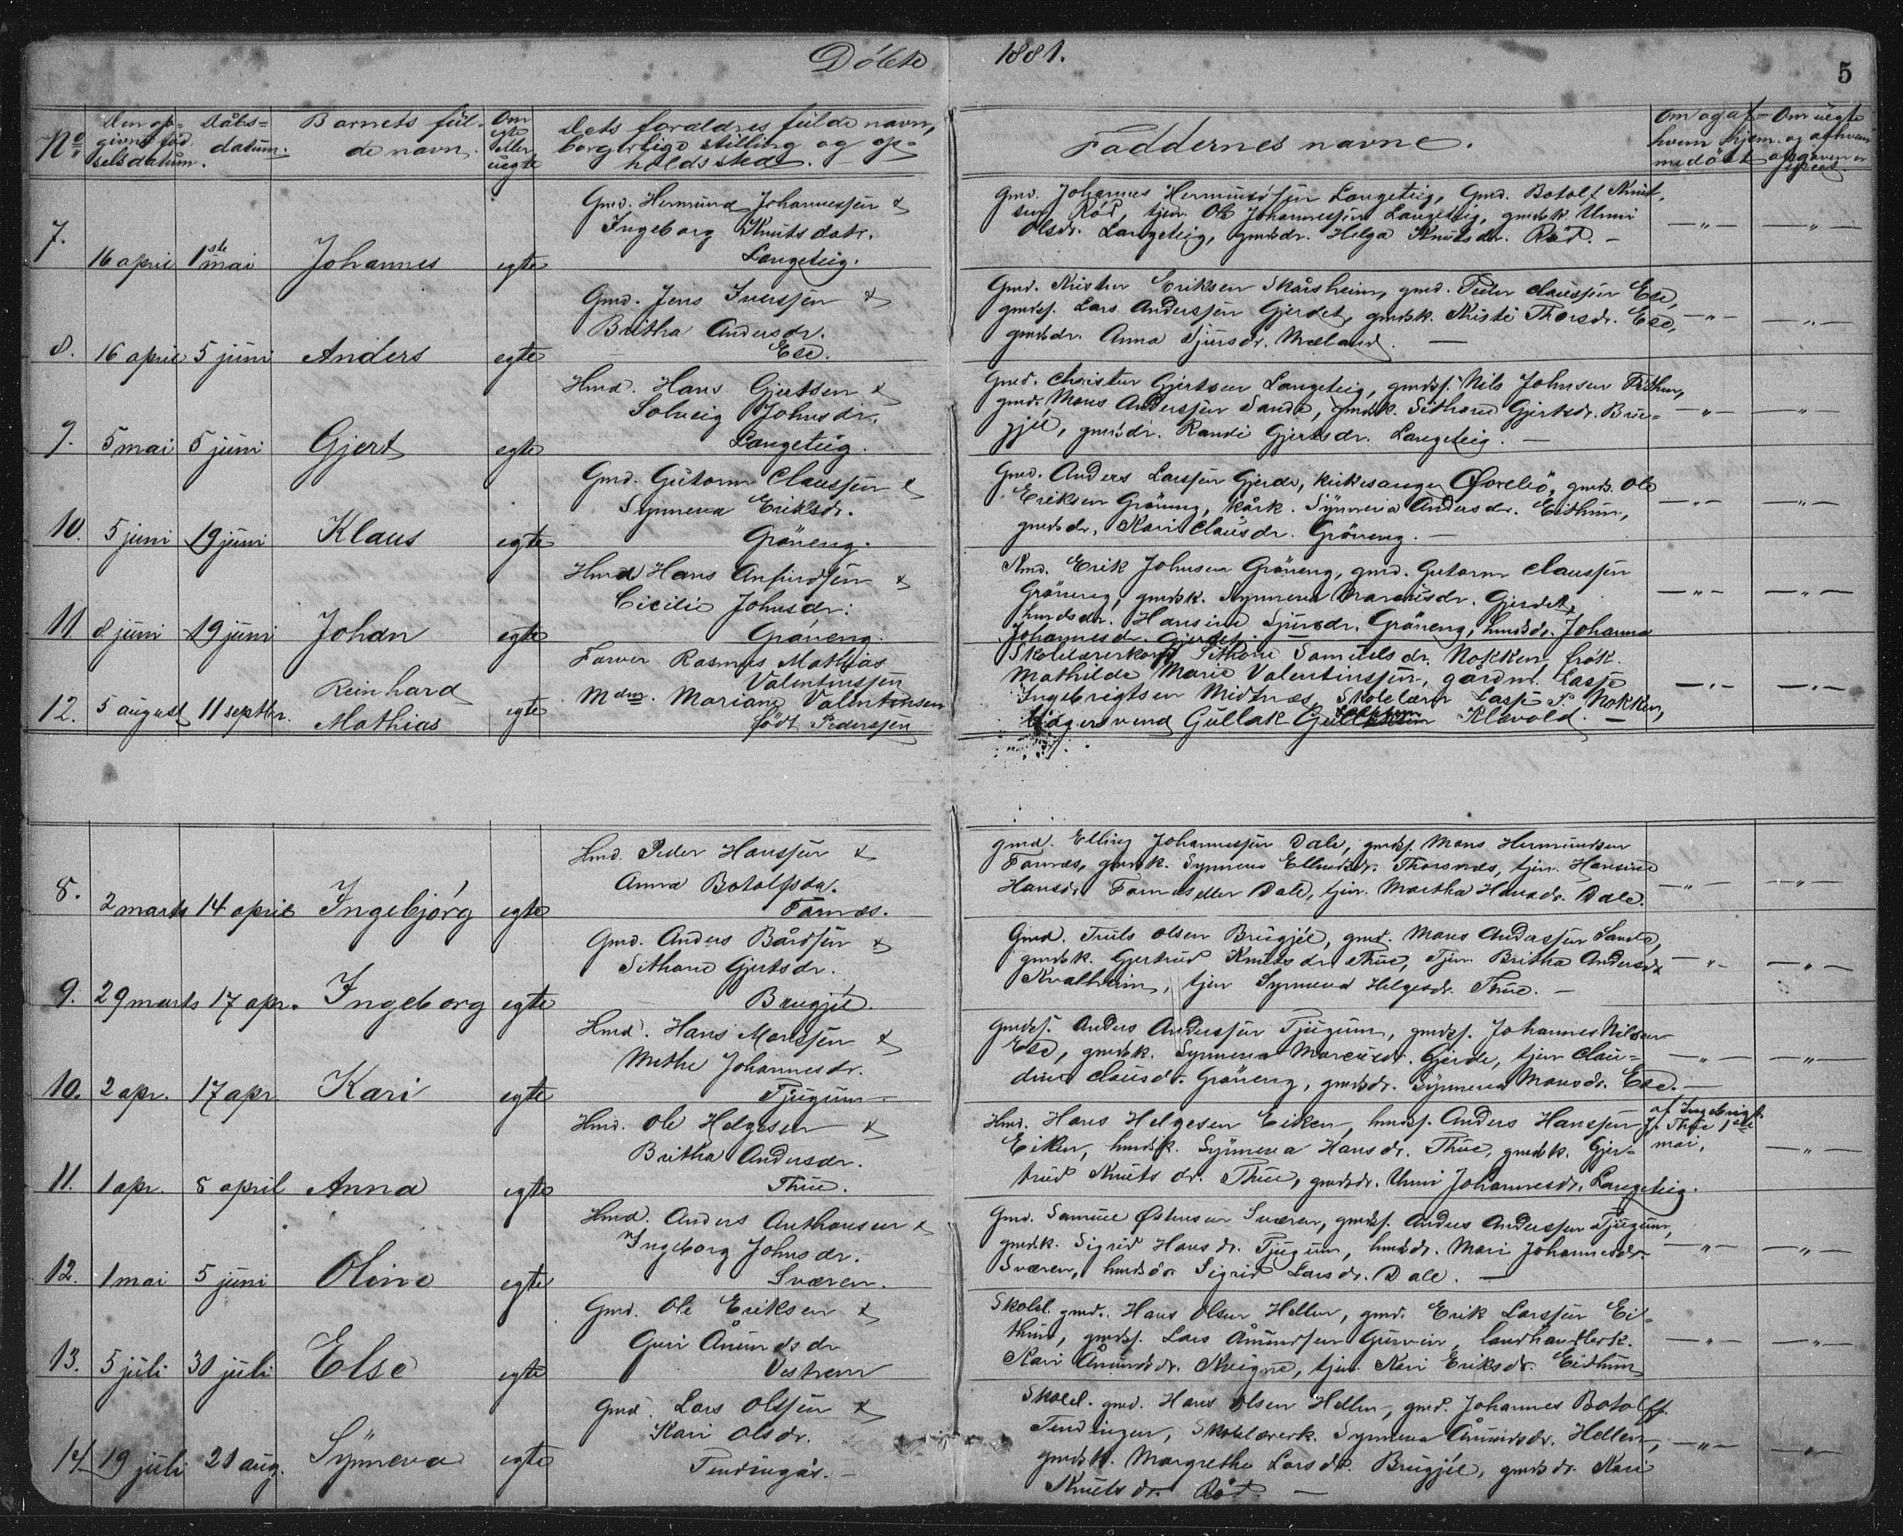 Döbte 1881.
5
No
Den opgivne fødselsdatum.
Dåbsdatum.
Barnets fulde navn.
Om egte eller uegte
Dets forældres fulde navn, borgerlige stilling og opholdssted.
Faddernes navne.
Om og af hvem hjemmedöbt
Om uegte og af hvem
7. 16 april 1ste mai Johannes egte
Gmd. Hermund Johannessen &
Ingeborg Knutsdatr.
Langeteig.
Gmd. Johannes Hermundsen Langeteig, Gmd. Botolf Knut-
sen Röd, tjen. Ole Johannessen Langeteig, gmdsk. Unni
Olsdr. Langeteig, gmdsdr. Helga Knutsdr. Röd. —
8. 16 april 5 juni Anders egte
Gmd. Jens Iverssen &
Britha Andersdr.
Ese.
Gmd. Kristen Eriksen Skårsheim, gmd. Peder Claussen Ese,
gmdss. Lars Anderssen Gjerdet, gmdsk. Kristi Thorsdr. Ese,
gmdsdr. Anna Sjursdr. Mæland. —
9. 5 mai 5 juni Gjert egte
Hmd. Hans Gjertsen &
Solveig Johnsdr.
Langeteig.
Gmd. Christen Gjertsen Langeteig, gmdss. Nils Johnsen
gmds. Mons Anderssen Sande, gmdsk. Sithone Gjertsdr. Bru-
gjil, gmdsdr. Randi Gjertsdr. Langeteig. —
10. 5 juni 19 juni Klaus egte
Gmd. Gutorm Claussen &
Synneva Eriksdr.
Gröneng.
Gmd. Anders Larssen Gjerde, kirkesanger Övrebö, gmds. Ole
Eriksen Gröneng, kårk. Synneva Andersdr. Eithun,
gmdsdr. Kari Clausdr. Gröneng. —
11 8 juni 19 juni Johan egte
Hmd. Hans Anfindsen &
Cicilie Johnsdr.
Gröneng.
Erik Johnsen Gröneng, gmd. Gutorm Claussen
Gröneng, gmdsk. Synneva Marcusdr. Gjerdet,
hmdsdr. Hansine Sjursdr. Gröneng, hmdsdr. Johanna
Johannesdr. Gjerdet. —
12. 5 august 11 septbr. Reinhard Mathias egte
Farver Rasmus Mathias
Valentinssen
Mdm. Mariane Valentinsen
født Pederssen
Skolelærerkone Sithone Samuelsdr. Nokken, frök.
Mathilde Marie Valentinssen, gårdm. Lasse
Ingebrigtsen Midtnæs, Skolelærer Lasse S. Nokken,
Gullak Klævold. —
8. 2 marts 14 april Ingebjørg egte
Hmd. Peder Hanssen &
Anna Botolfsdr.
Farnæs.
gmd. Elling Johannessen Dale, gmdss. Mons Hermundsen
Farnæs, gmdsk. Synneva Ellendsdr. Thorsnæs, tjen. Hansine
Hansdr. Farnæs eller Dale, tjen. Martha Hansdr. Dale.
9. 29 marts 17 apr. Ingeborg egte
Gmd. Anders Bårdsen &
Sithone Gjertsdr.
Brugjil.
Gmd. Truls Olsen Brugjil, gmd. Mons Anderssen Sande,
gmdsk. Gjertrud Knutsdr. Thue, Tjen. Britha Andersdr.
Kvalheim, tjen Synneva Helgesdr. Thue. —
10. 2 apr. 17 apr. Kari egte
Hmd. Hans Monssen &
Methe Johannesdr.
Tjugum
Gmdss. Anders Anderssen Tjugum, gmdss. Johannes Nilsen
Ese, gmdsk. Synneva Marcusdr. Gjerde, tjen Clau-
dine Clausdr. Gröneng, gmdsdr. Synneva Monsdr. Ese. —
11. 1 apr. 8 april Anna egte
Hmd. Ole Helgesen &
Britha Andersdr.
Thue.
Hmd. Hans Helgesen Eiken, hmdss. Anders Hanssen
Eiken, hmdsk. Synneva Hansdr. Thue, gmdsk. Gjer-
trud Knutsdr. Thue, gmdsdr. Unni Johannesdr. Langeteig.
af Ingebrigt
J. Thue 1ste
mai.
12. 1 mai 5 juni Oline egte
Hmd. Anders Anthonsen &
Ingeborg Johnsdr.
Sværen.
Gmd. Samuel Östensen Sværen, gmdss. Anders Anderssen Tjugum,
gmdsk. Sigrid Hansdr. Tjugum, hmdsdr. Mari Johannesdr.
Sværen, hmdsdr. Sigrid Larsdr. Dale. —
13. 5 juli 31 juli Else egte
Gmd. Ole Eriksen &
Guri Åmundsdr
Vestrem
Skolel. gmd. Hans Olsen Hellen, gmd. Erik Larssen Ei-
thun, gmdss. Lars Åmundsen Gurvin, landhandlerk.
Kari Åmundsdr. Kvigne, tjen. Kari Eriksdr. Eidhun
14 19 juli 21 aug. Synneva egte
Gmd. Lars Olssen &
Kari Olsdr.
Fendingås. —
Skolel. gmd. Hans Olsen Hellen, gmd. Johannes Botolfs.
Fendingen, Skolelærerk. Synneva Åmundsdr. Hellen,
gmdsk. Margrethe Larsdr. Brugjil, gmdsdr. Kari
Knutsdr. Röd. —